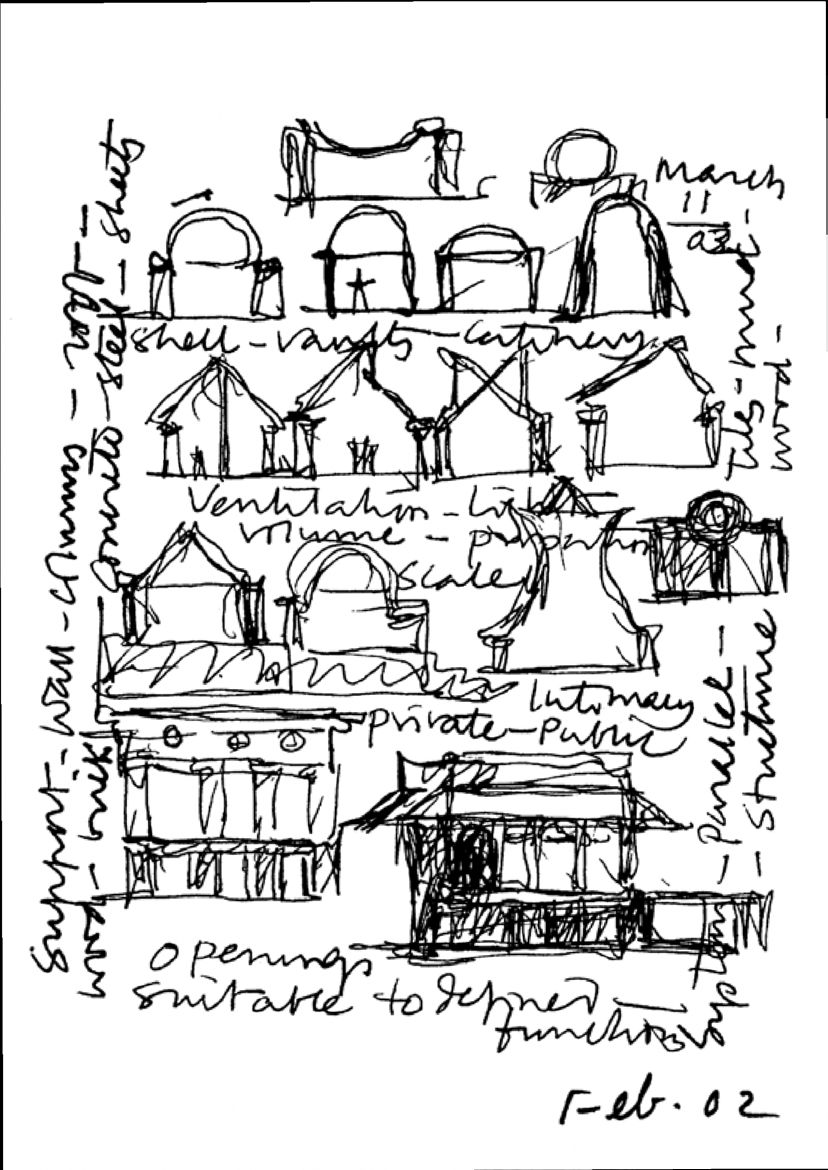 March
11
03
shell-vaults-catinery
Ventilation-light
volume - proportion
scale
Intimacy
private-Public
Openings
suitable to defined
functions
Feb. 02
Support-wall-columns-roof-
wood-brik concrete-steel-sheets
Tiles-mud-
wood-
systems - Parallel -
- Structure